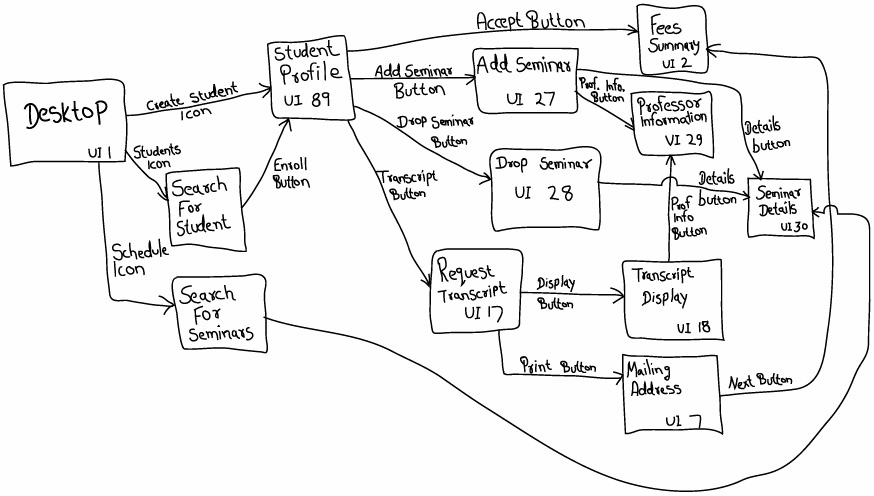 Desktop
UI 1
Create Student
Icon
Students
Icon
Schedule
Icon
Search
For
Student
Search
For
Seminars
Enroll
Button
Student
Profile
UI 89
Accept Button
Add Seminar
Button
Drop Seminar
Button
Transcript
Button
Fees
Summary
UI 2
Add Seminar
UI 27
Prof. Info.
Button
Professor
Information
UI 29
Details
button
Drop Seminar
UI 28
Details
button
Seminar
Details
UI 30
Prof
Info
Button
Request
Transcript
UI 17
Display
Button
Transcript
Display
UI 18
Print Button
Mailing
Address
UI 7
Next Button